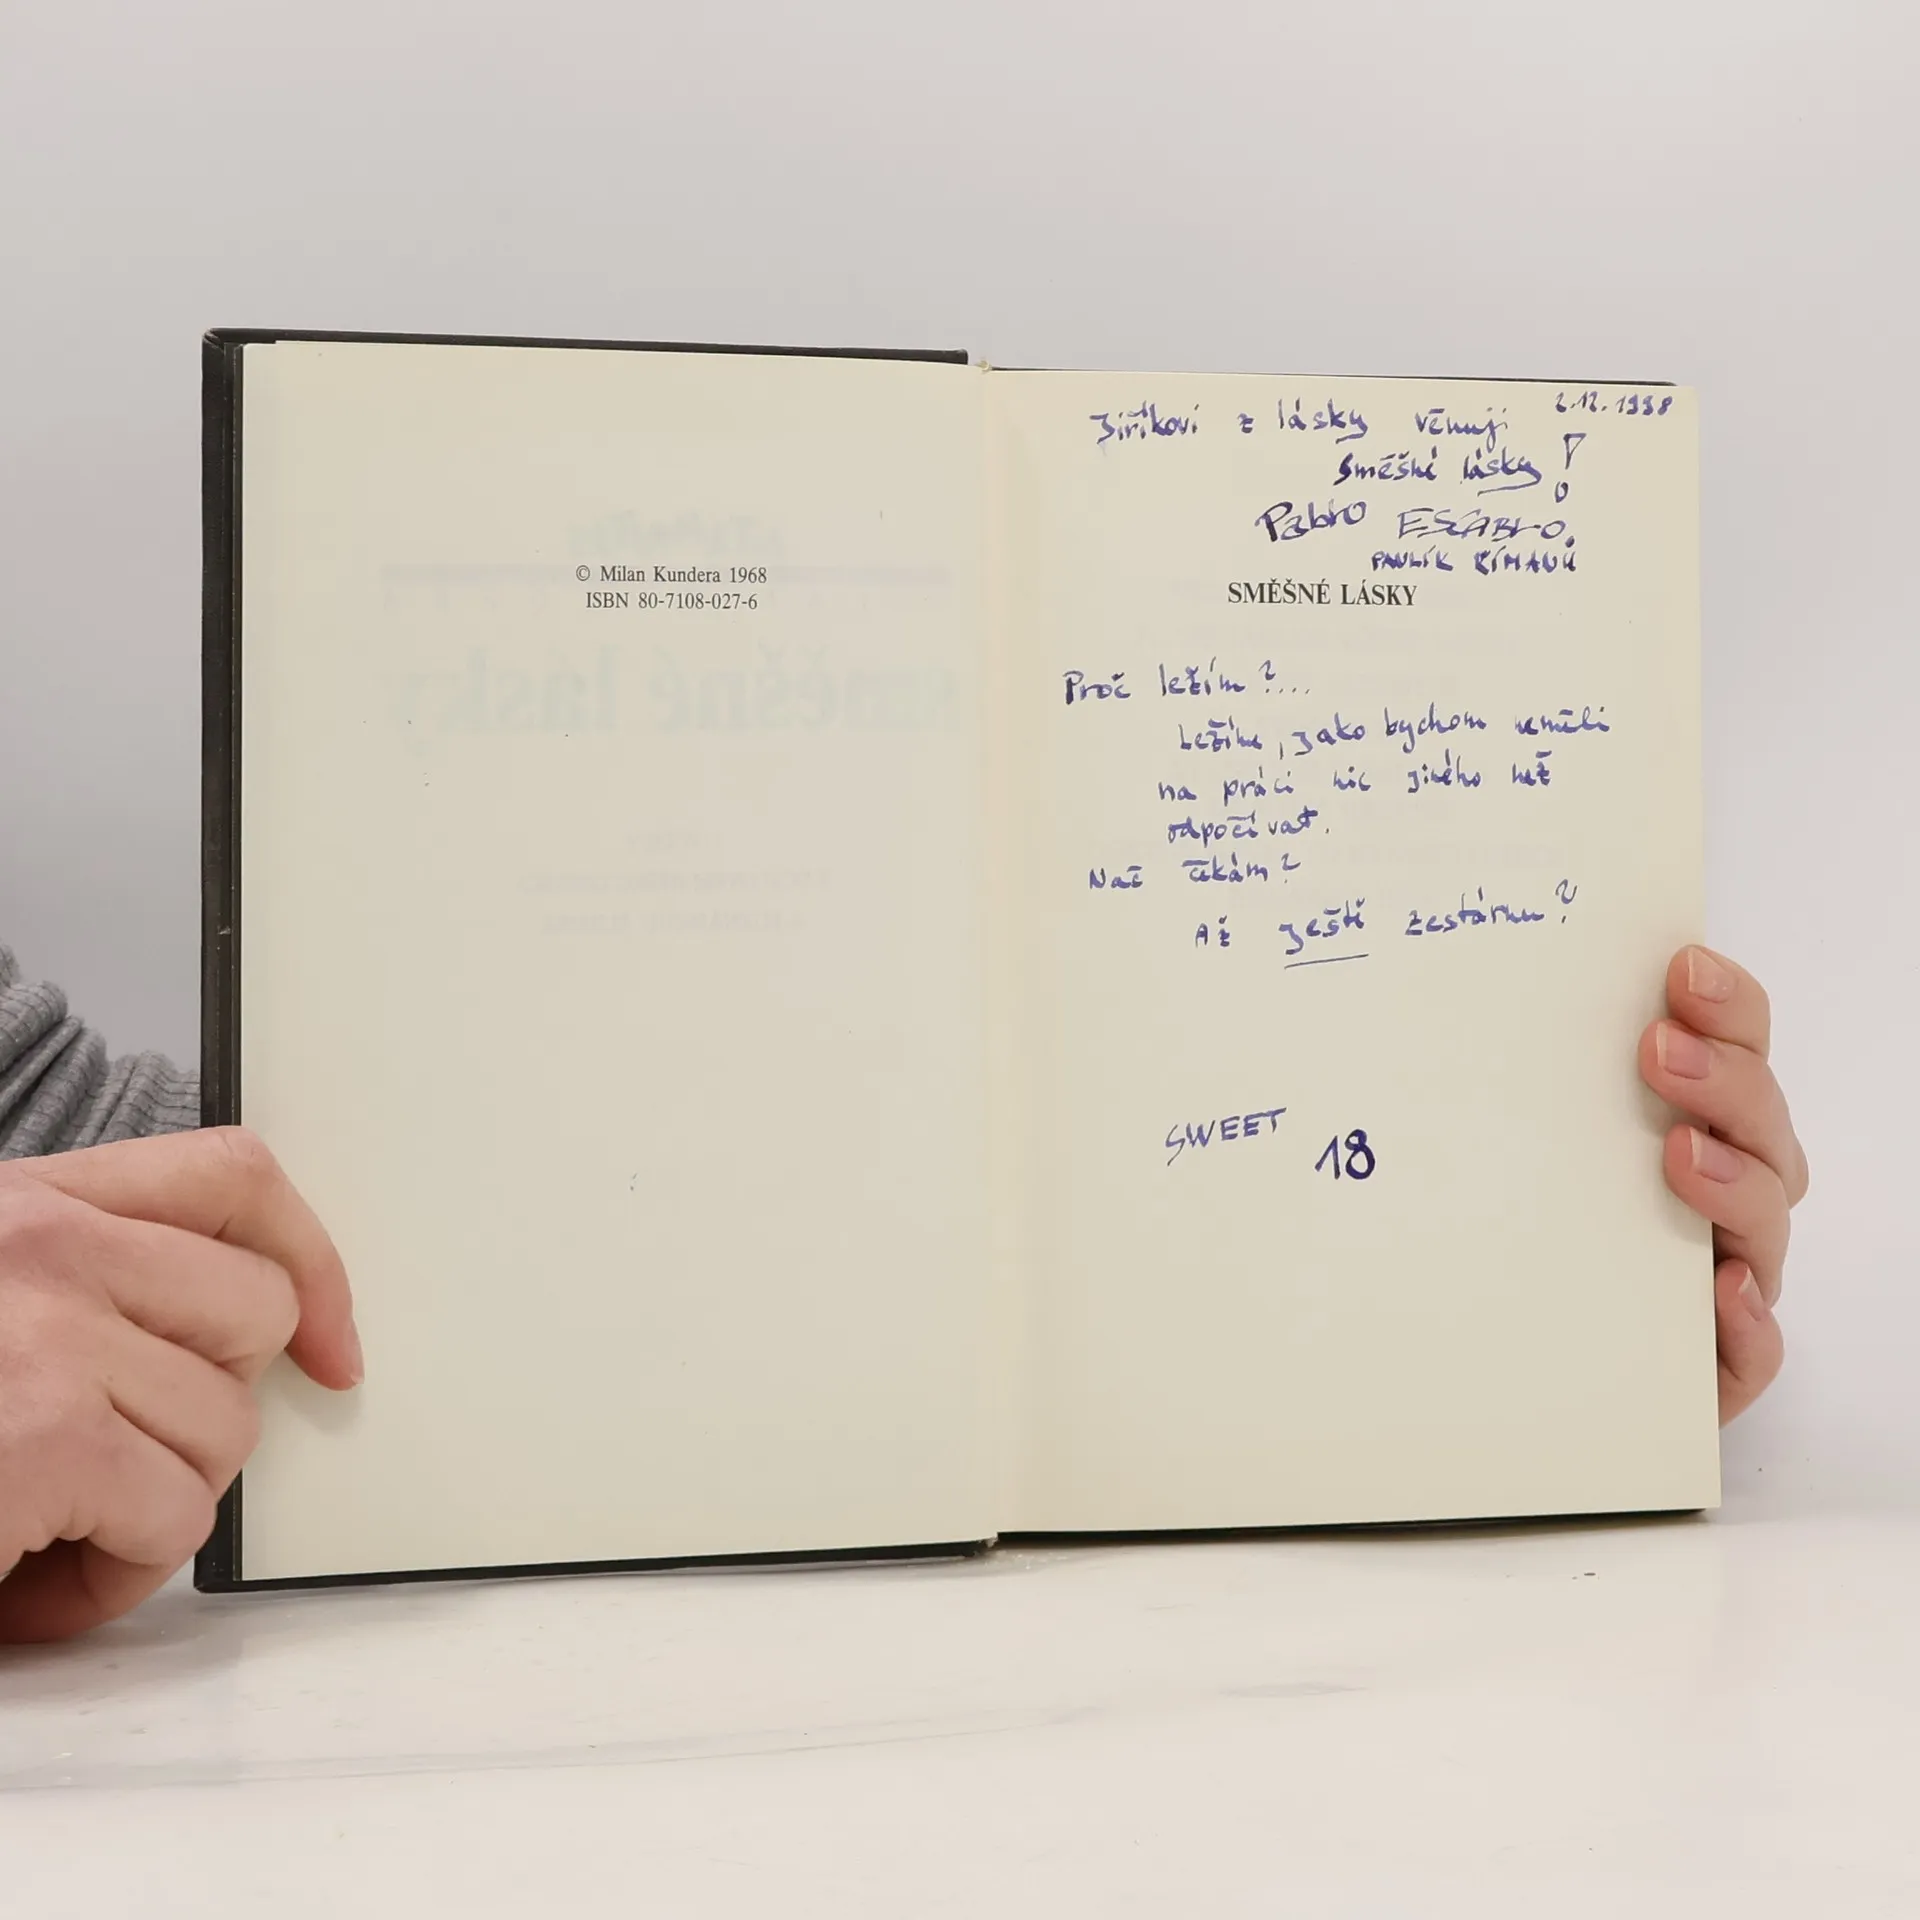 © Milan Kundera 1968
ISBN 80-7108-027-6
2.12.1998
Jiříkovi z lásky věnuji
Směšné lásky!
Pablo ESCABLO.
PAVLÍK ŘÍMANŮ
SMĚŠNÉ LÁSKY
Proč ležím?...
Ležíme, jako bychom neměli
na práci nic jiného než
odpočívat.
Nač čekám?
Až ještě zestárnu?
SWEET 18